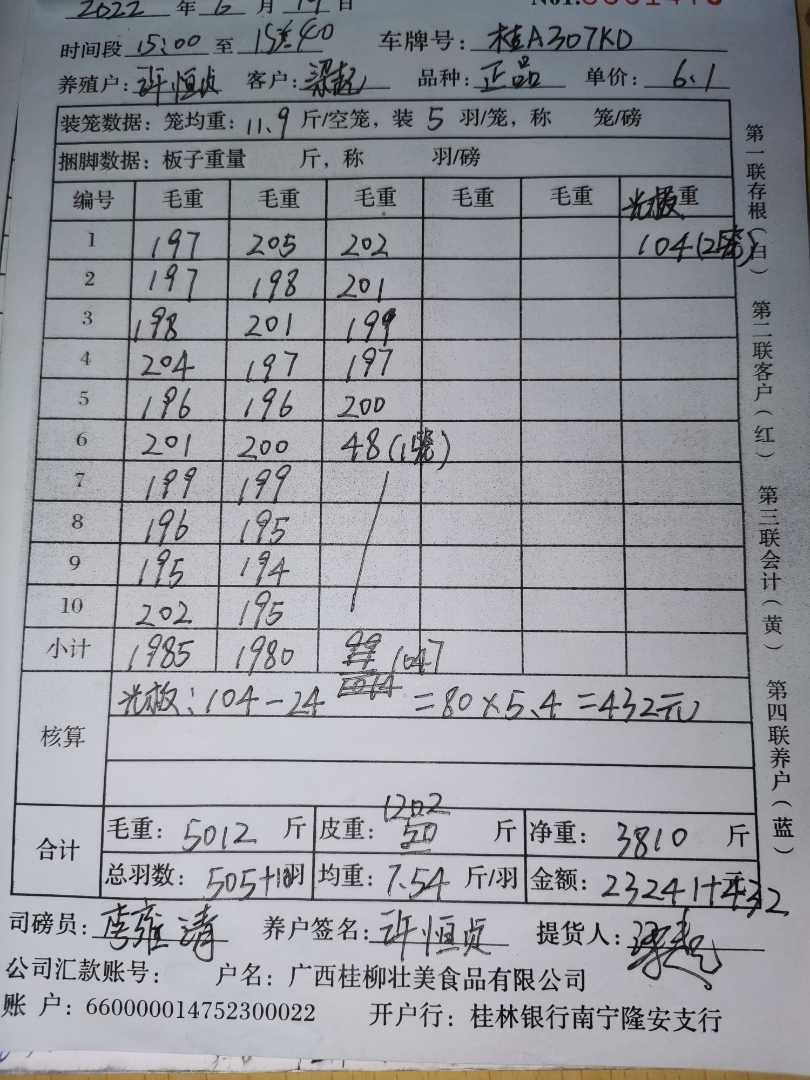 2022 年 6 月 19 日 No1:
时间段 15:00 至 15:40 车牌号: 桂A307KD
养殖户: 许恒贞 客户: 梁起 品种: 正品 单价: 6.1
装笼数据: 笼均重: 11.9 斤/空笼, 装 5 羽/笼, 称 笼/磅
捆脚数据: 板子重量 斤, 称 羽/磅
编号 毛重 毛重 毛重 毛重 毛重 光板 重
1 197 205 202 104(2笼)
2 197 198 201
3 198 201 199
4 204 197 197
5 196 196 200
6 201 200 48(1笼)
7 199 199
8 196 195
9 195 194
10 202 195
小计 1985 1980 1047
核算 光板: 104-24=80×5.4=432元
合计 毛重: 5012 斤 皮重: 1202 斤 净重: 3810 斤
总羽数: 505+10羽 均重: 7.54 斤/羽 金额: 23241+432 元
司磅员: 李雍清 养户签名: 许恒贞 提货人:
公司汇款账号: 户名: 广西桂柳壮美食品有限公司
账 户: 660000014752300022 开户行: 桂林银行南宁隆安支行
第一联存根(白) 第二联客户(红) 第三联会计(黄) 第四联养户(蓝)